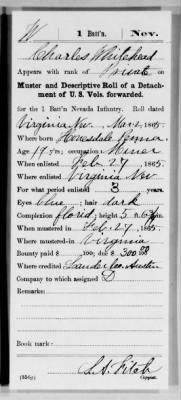 W 1 Batt'n. Nev.
Charles Whitehead
Appears with rank of Private on
Muster and Descriptive Roll of a Detach-
ment of U. S. Vols. forwarded.
for the 1 Batt'n Nevada Infantry. Roll dated
Virginia Nv. Mar 2, 1865.
Where born Honesdale Penna
Age 19 y'rs; occupation Miner
When enlisted Feb 27, 1865.
Where enlisted Virginia Nv
For what period enlisted 3 years.
Eyes blue; hair dark
Complexion florid; height 5 ft. in.
When mustered in Feb. 27, 1865.
Where mustered in Virginia
Bounty paid $ 100; due $ 300 100
Where credited Lander Co. Austin
Company to which assigned D
Remarks:
Book mark:
(356g) Copyist.